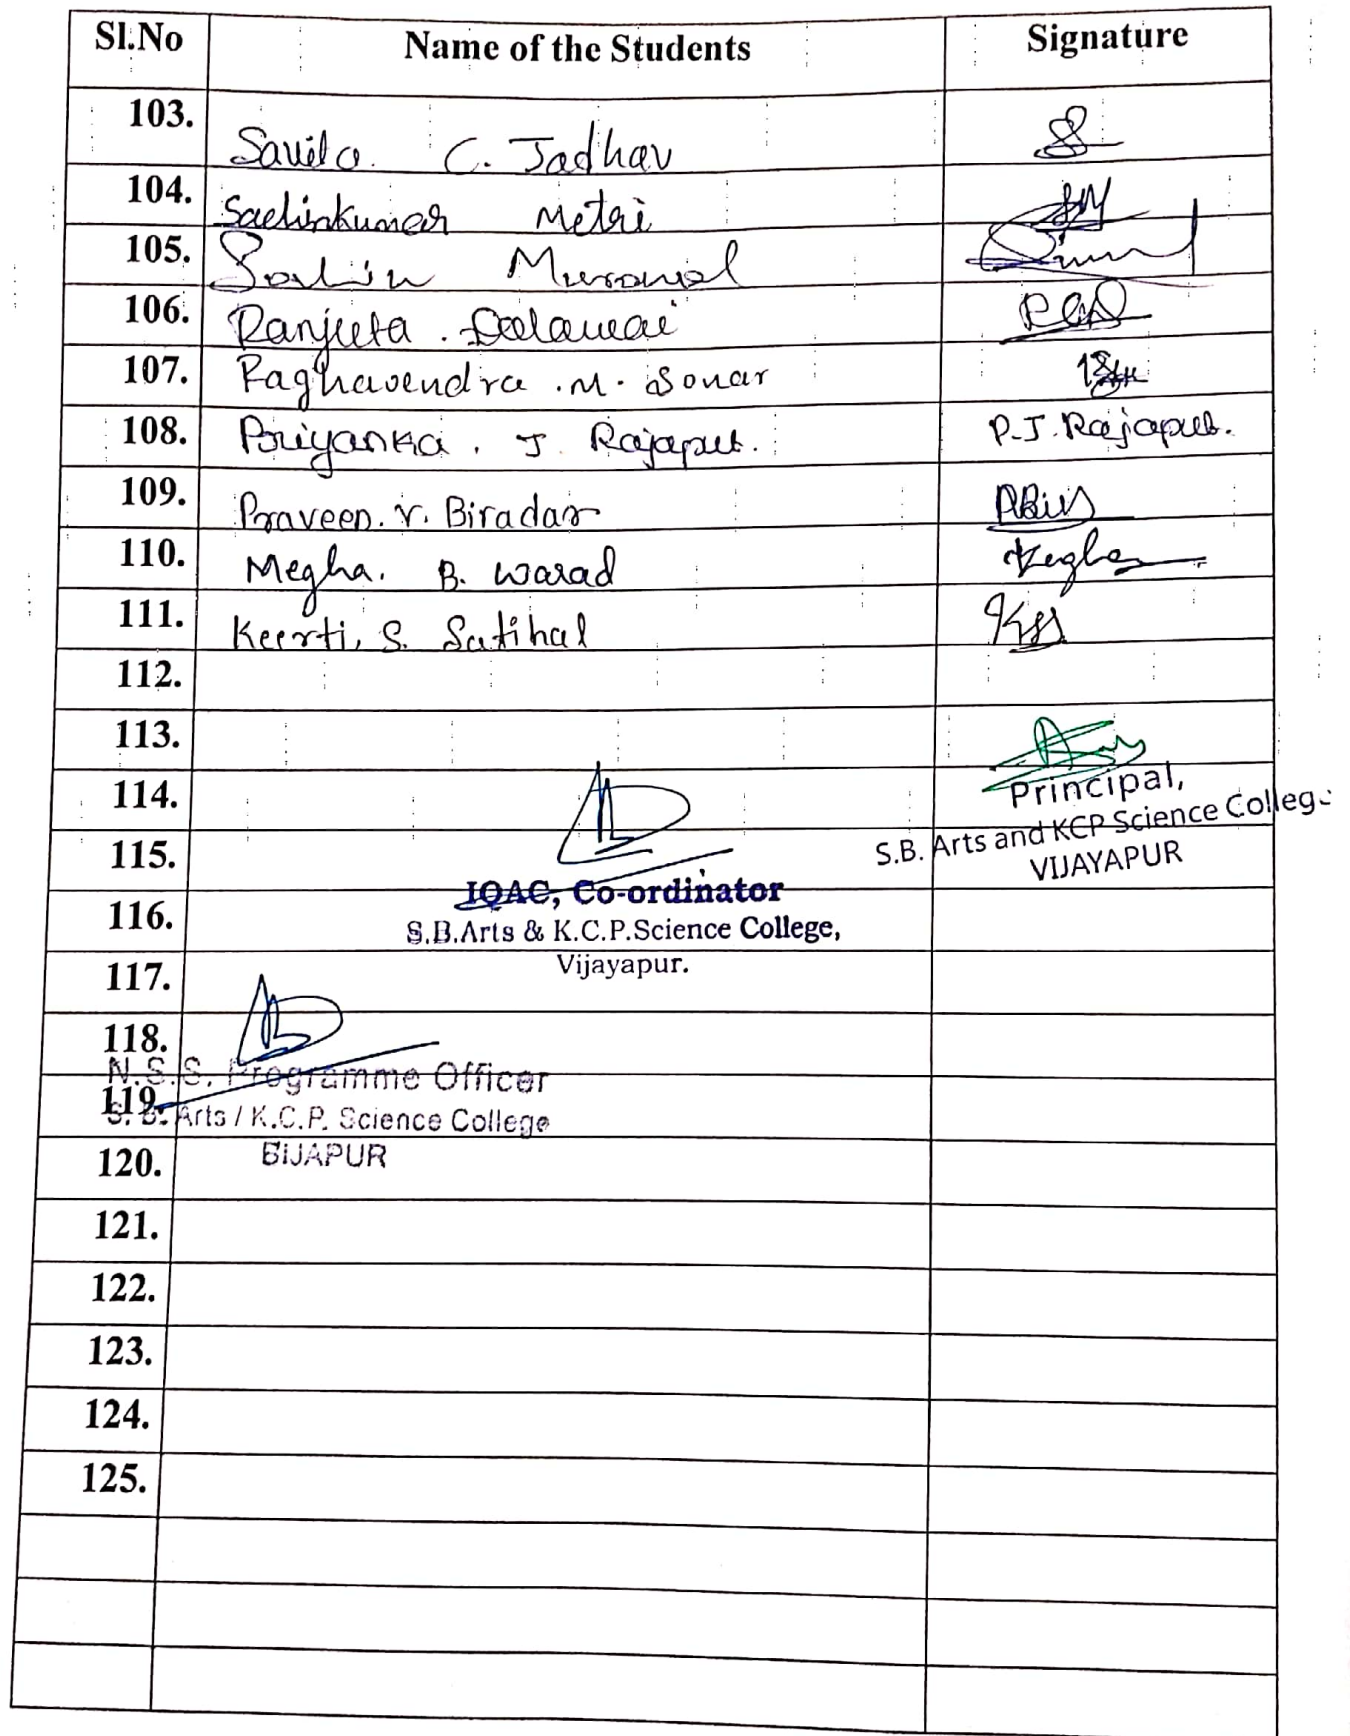 Sl.No Name of the Students Signature
103. Savita. C. Jadhav
104. Sachinkumar Metri
105. Sachin
106. Ranjeeta . Dalawai
107. Raghavendra .M. Sonar
108. Priyanka . J. Rajaput. P.J. Rajaput.
109. Praveen. V. Biradar
110. Megha. B. Warad Megha
111. Keerti, S. Satihal
112.
113.
114. Principal,
S.B. Arts and KCP Science College
115. VIJAYAPUR
IQAC, Co-ordinator
116. S.B.Arts & K.C.P.Science College,
117. Vijayapur.
118.
N.S.S. Programme Officer
119. S. B. Arts / K.C.P. Science College
120. BIJAPUR
121.
122.
123.
124.
125.